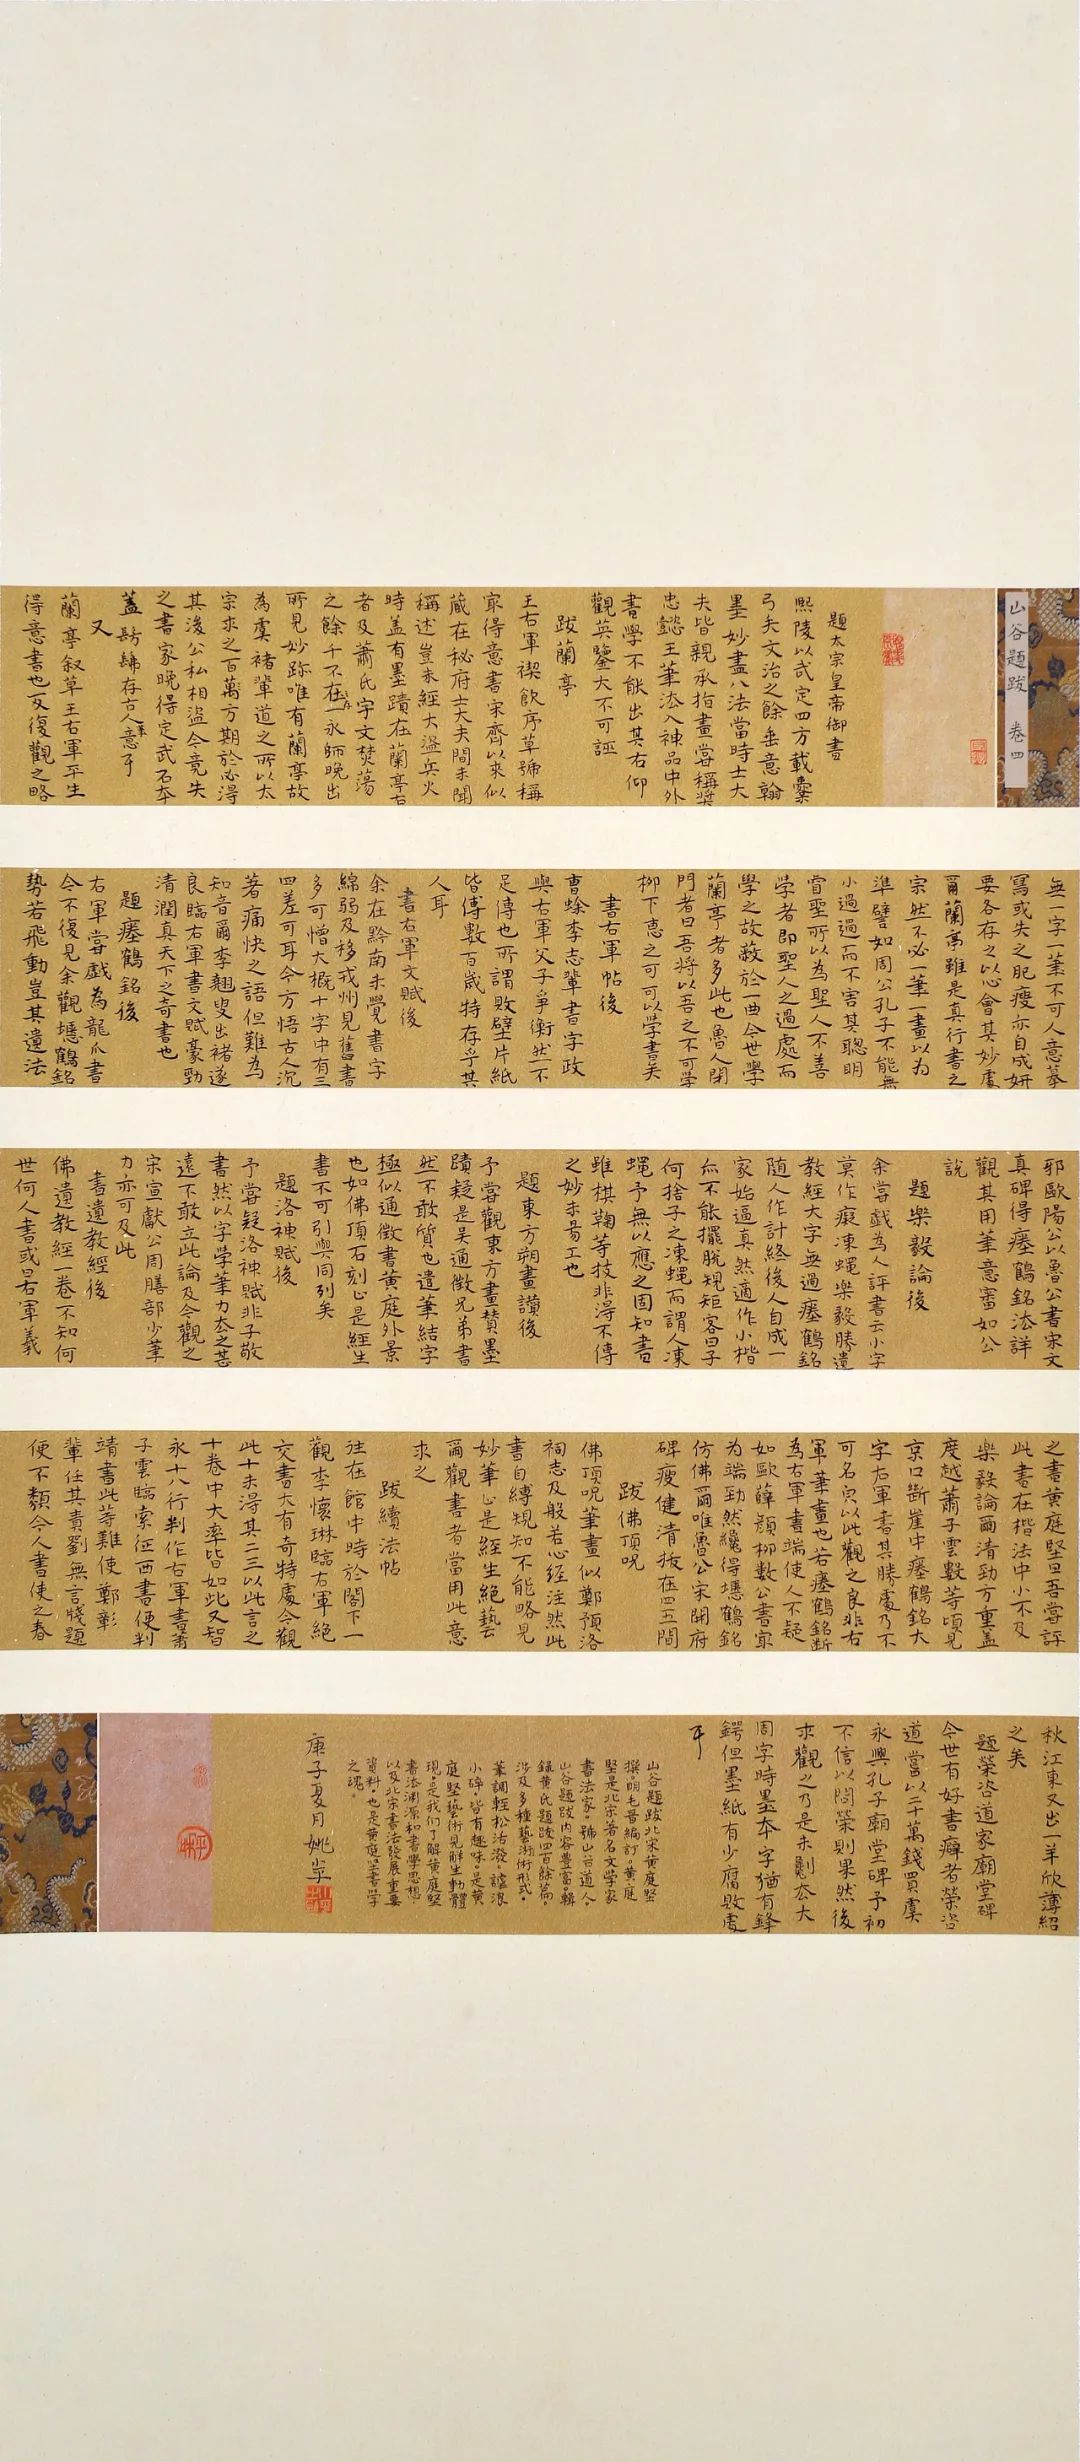 山谷題跋 卷四
題太宗皇帝御書
熙陵以武定四方載櫜
弓矢文治之餘垂意翰
墨妙盡八法當時士大
夫皆親承指畫嘗稱獎
忠懿王筆法入神品中外
書學不能出其右仰
觀英鑒大不可誣
跋蘭亭
王右軍禊飲序草號稱
最得意書宋齊以來似
藏在秘府士大夫間未聞
稱述豈未經大盜兵火
時蓋有墨蹟在蘭亭右
者及蕭氏宇文焚蕩
之餘千不存一永師晚出
所見妙跡唯有蘭亭故
為虞褚輩道之所以太
宗求之百萬方期於必得
其後公私相盜今竟失
之書家晚得定武石本
蓋髣髴存古人筆意耳
又
蘭亭叙草王右軍平生
得意書也反復觀之略
無一字一筆不可人意摹
寫或失之肥瘦亦自成妍
要各存之以心會其妙處
爾蘭亭雖是真行書之
宗然不必一筆一畫以為
準譬如周公孔子不能無
小過過而不害其聰明
睿聖所以為聖人不善
學者即聖人之過處而
學之故蔽於一曲今世學
蘭亭者多此也魯人閉
門者曰吾將以吾之不可學
柳下惠之可可以學書矣
書右軍帖後
曹蜍李志輩書字政
與右軍父子爭衡然不
足傳也所謂敗壁片紙
皆傳數百歲特存乎其
人耳
書右軍文賦後
余在黔南未覺書字
綿弱及移戎州見舊書
多可憎大概十字中有三
四差可耳今方悟古人沉
著痛快之語但難為
知音爾李翹叟出褚遂
良臨右軍書文賦豪勁
清潤真天下之奇書也
題瘞鶴銘後
右軍嘗戲為龍爪書
今不復見余觀瘞鶴銘
勢若飛動豈其遺法
邪歐陽公以魯公書宋文
真碑得瘞鶴銘法詳
觀其用筆意審如公
說
題樂毅論後
余嘗戲為人評書云小字
莫作癡凍蠅樂毅勝遺
教經大字無過瘞鶴銘
隨人作計終後人自成一
家始逼真然適作小楷
亦不能擺脫規矩客曰子
何捨子之凍蠅而謂人凍
蠅予無以應之固知書
雖棋鞠等技非得不傳
之妙未易工也
題東方朔畫讚後
予嘗觀東方畫贊墨
蹟疑是吴通微兄弟書
然不敢質也遺筆結字
極似通微書黄庭外景
也如佛頂石刻止是經生
書不可引與同列矣
題洛神賦後
予嘗疑洛神賦非子敬
書然以字學筆力去之甚
遠不敢立此論及今觀之
宋宣獻公周膳部少筆
力亦可及此
書遺教經後
佛遺教經一卷不知何
世何人書或曰右軍羲
之書黄庭堅曰吾嘗評
此書在楷法中小不及
樂毅論爾清勁方重蓋
度越蕭子雲數等頃見
京口斷崖中瘞鶴銘大
字右軍書其勝處乃不
可名皃以此觀之良非右
軍筆畫也若瘞鶴銘斷
為右軍書端使人不疑
如歐薛顏柳數公書最
為端勁然纔得瘞鶴銘
仿佛爾唯魯公宋開府
碑瘦健清拔在四五間
跋佛頂呪
佛頂呪筆畫似鄭預洛
祠志及般若心經注然此
書自縛規矩不能略見
妙筆止是經生絕藝
爾觀書者當用此意
求之
跋續法帖
往在館中時於閣下一
觀李懷琳臨右軍絕
交書大有奇特處今觀
此十未得其二三以此言之
十卷中大率皆如此又智
永十八行判作右軍書蕭
子雲臨索征西書便判
靖書此等難使鄭彰
輩任其責劉無言牋題
便不類今人書使之春
秋江東又出一羊欣薄紹
之矣
題榮咨道家廟堂碑
今世有好書癖者榮咨
道嘗以二十萬錢買虞
永興孔子廟堂碑予初
不信以問榮則果然後
求觀之乃是未劖去大
周字時墨本字猶有鋒
鍔但墨紙有少腐敗處
耳
山谷題跋北宋黄庭堅
撰。明毛晉編訂。黄庭
堅是北宋著名文學家
書法家。號山谷道人。
山谷題跋内容豐富。輯
錄黄氏題跋四百餘篇。
涉及多種藝術形式。
筆調輕松活潑。謔浪
小碎。皆有趣味。是黄
庭堅藝術見解生動體
現。是我們了解黄庭堅
書法淵源和書學思想
以及北宋書法發展重要
資料。也是黄庭堅書學
之魂。
庚子夏月姚芈